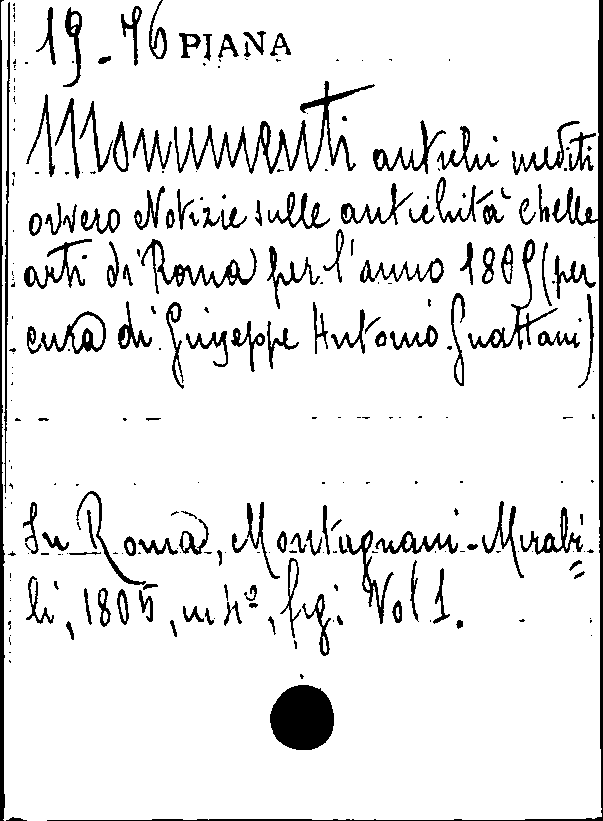 19-76 PIANA
Monumenti antichi inediti
ovvero Notizie sulle antichità e belle
arti di Roma per l'anno 1805 (per
cura di Giuseppe Antonio Guattani)
In Roma, Montagnani-Mirabi=
li, 1805, in 4º, fig. Vol 1.